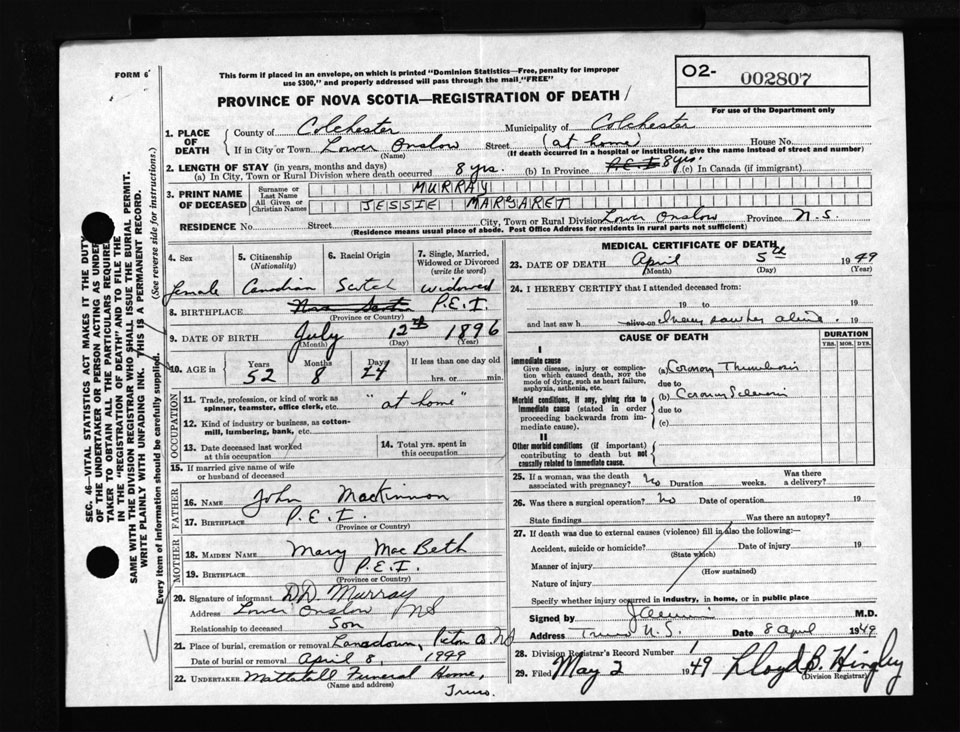 FORM 6
This form if placed in an envelope, on which is printed "Dominion Statistics—Free, penalty for improper
use $300," and properly addressed will pass through the mail "FREE"
O2- 002807
PROVINCE OF NOVA SCOTIA—REGISTRATION OF DEATH
For use of the Department only
1. PLACE OF DEATH
County of Colchester Municipality of Colchester
If in City or Town Lower Onslow Street (at home) House No.
(Name) (If death occurred in a hospital or institution, give the name instead of street and number)
2. LENGTH OF STAY (in years, months and days)
(a) In City, Town or Rural Division where death occurred 8 yrs. (b) In Province P.E.I 8 yrs. (c) In Canada (if immigrant)
3. PRINT NAME OF DECEASED
Surname or Last Name MURRAY
All Given or Christian Names JESSIE MARGARET
RESIDENCE No. Street City, Town or Rural Division Lower Onslow Province N.S.
(Residence means usual place of abode. Post Office Address for residents in rural parts not sufficient)
4. Sex Female
5. Citizenship (Nationality) Canadian
6. Racial Origin Scotch
7. Single, Married, Widowed or Divorced (write the word) widowed
8. BIRTHPLACE Nova Scotia P.E.I.
(Province or Country)
9. DATE OF BIRTH July 12th 1896
(Month) (Day) (Year)
10. AGE in Years Months Days If less than one day old
52 8 hrs. or min.
OCCUPATION
11. Trade, profession, or kind of work as
spinner, teamster, office clerk, etc. "at home"
12. Kind of industry or business, as cotton-
mill, lumbering, bank, etc.
13. Date deceased last worked
at this occupation
14. Total yrs. spent in
this occupation
15. If married give name of wife
or husband of deceased
FATHER
16. NAME John MacKinnon
17. BIRTHPLACE P.E.I.
(Province or Country)
MOTHER
18. MAIDEN NAME Mary MacBeth
19. BIRTHPLACE P.E.I.
(Province or Country)
20. Signature of informant D.D. Murray
Address Lower Onslow NS
Relationship to deceased Son
21. Place of burial, cremation or removal Lansdown, Pictou Co. NS
Date of burial or removal April 8, 1949
22. UNDERTAKER Mattatall Funeral Home,
(Name and address) Truro.
MEDICAL CERTIFICATE OF DEATH
23. DATE OF DEATH April 5th 1949
(Month) (Day) (Year)
24. I HEREBY CERTIFY that I attended deceased from:
19 to 19
and last saw h alive on I never saw her alive. 19
CAUSE OF DEATH
DURATION
YRS. MOS. DYS.
I
Immediate cause
Give disease, injury or complica-
tion which caused death, NOT the
mode of dying, such as heart failure,
asphyxia, asthenia, etc.
(a) Coronary Thrombosis
due to
Morbid conditions, if any, giving rise to
immediate cause (stated in order
proceeding backwards from im-
mediate cause).
(b) Coronary Sclerosis
due to
(c)
II
Other morbid conditions (if important)
contributing to death but not
causally related to immediate cause.
25. If a woman, was the death
associated with pregnancy? No Duration weeks. Was there
a delivery?
26. Was there a surgical operation? No Date of operation 19
State findings Was there an autopsy?
27. If death was due to external causes (violence) fill in also the following:
Accident, suicide or homicide? Date of injury 19
(State which)
Manner of injury
(How sustained)
Nature of injury
Specify whether injury occurred in industry, in home, or in public place
Signed by M.D.
Address Truro N.S. Date 8 April 1949
28. Division Registrar's Record Number 1
29. Filed May 2 1949 Lloyd B. Hingley
(Division Registrar)
SEC. 46—VITAL STATISTICS ACT MAKES IT THE DUTY
OF THE UNDERTAKER OR PERSON ACTING AS UNDER-
TAKER TO OBTAIN ALL THE PARTICULARS REQUIRED
IN THE "REGISTRATION OF DEATH" AND TO FILE THE
SAME WITH THE DIVISION REGISTRAR WHO SHALL ISSUE THE BURIAL PERMIT.
WRITE PLAINLY WITH UNFADING INK. THIS IS A PERMANENT RECORD.
Every item of information should be carefully supplied. (See reverse side for instructions.)